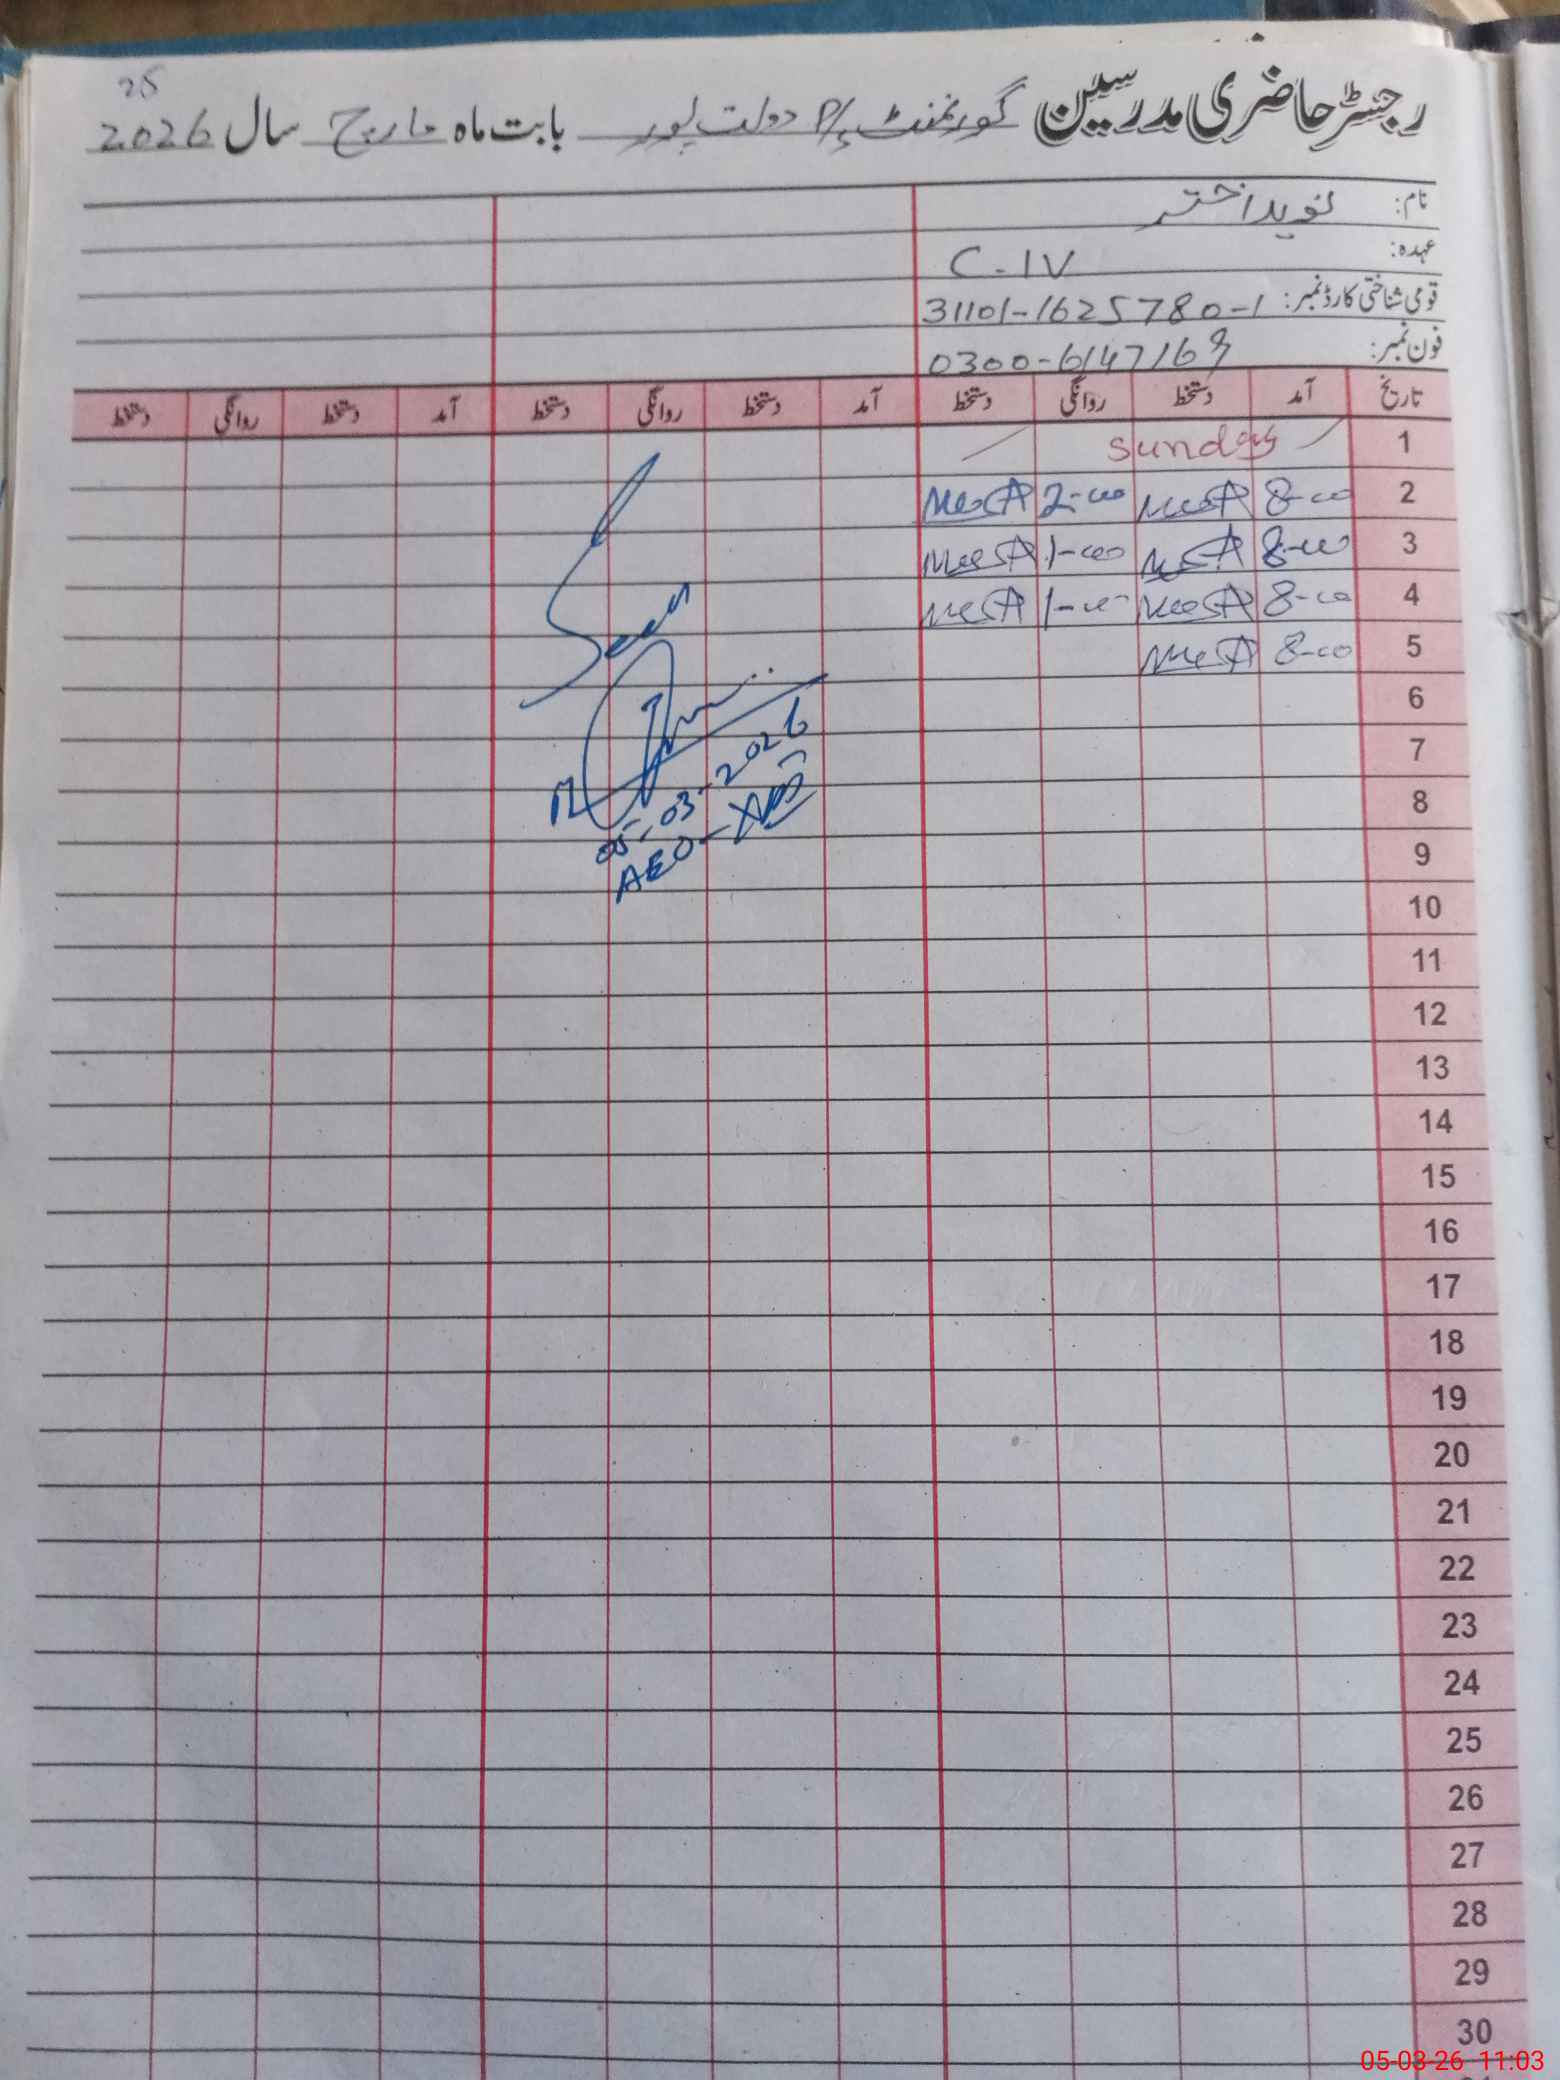 25
رجسٹر حاضری مدرسین گورنمنٹ P/S دولت پور بابت ماہ مارچ سال 2026
نام: نوید اختر
عہدہ: C-IV
قومی شناختی کارڈ نمبر: 31101-1625780-1
فون نمبر: 0300-6147169
تاریخ آمد دستخط روانگی دستخط آمد دستخط روانگی دستخط آمد دستخط روانگی دستخط
1 Sunday
2 8-00 2-00
3 8-00 1-00
4 8-00 1-00
5 8-00
Seen
6
7
05-03-2026
8
AEO
9
10
11
12
13
14
15
16
17
18
19
20
21
22
23
24
25
26
27
28
29
30
05-03-26 11:03